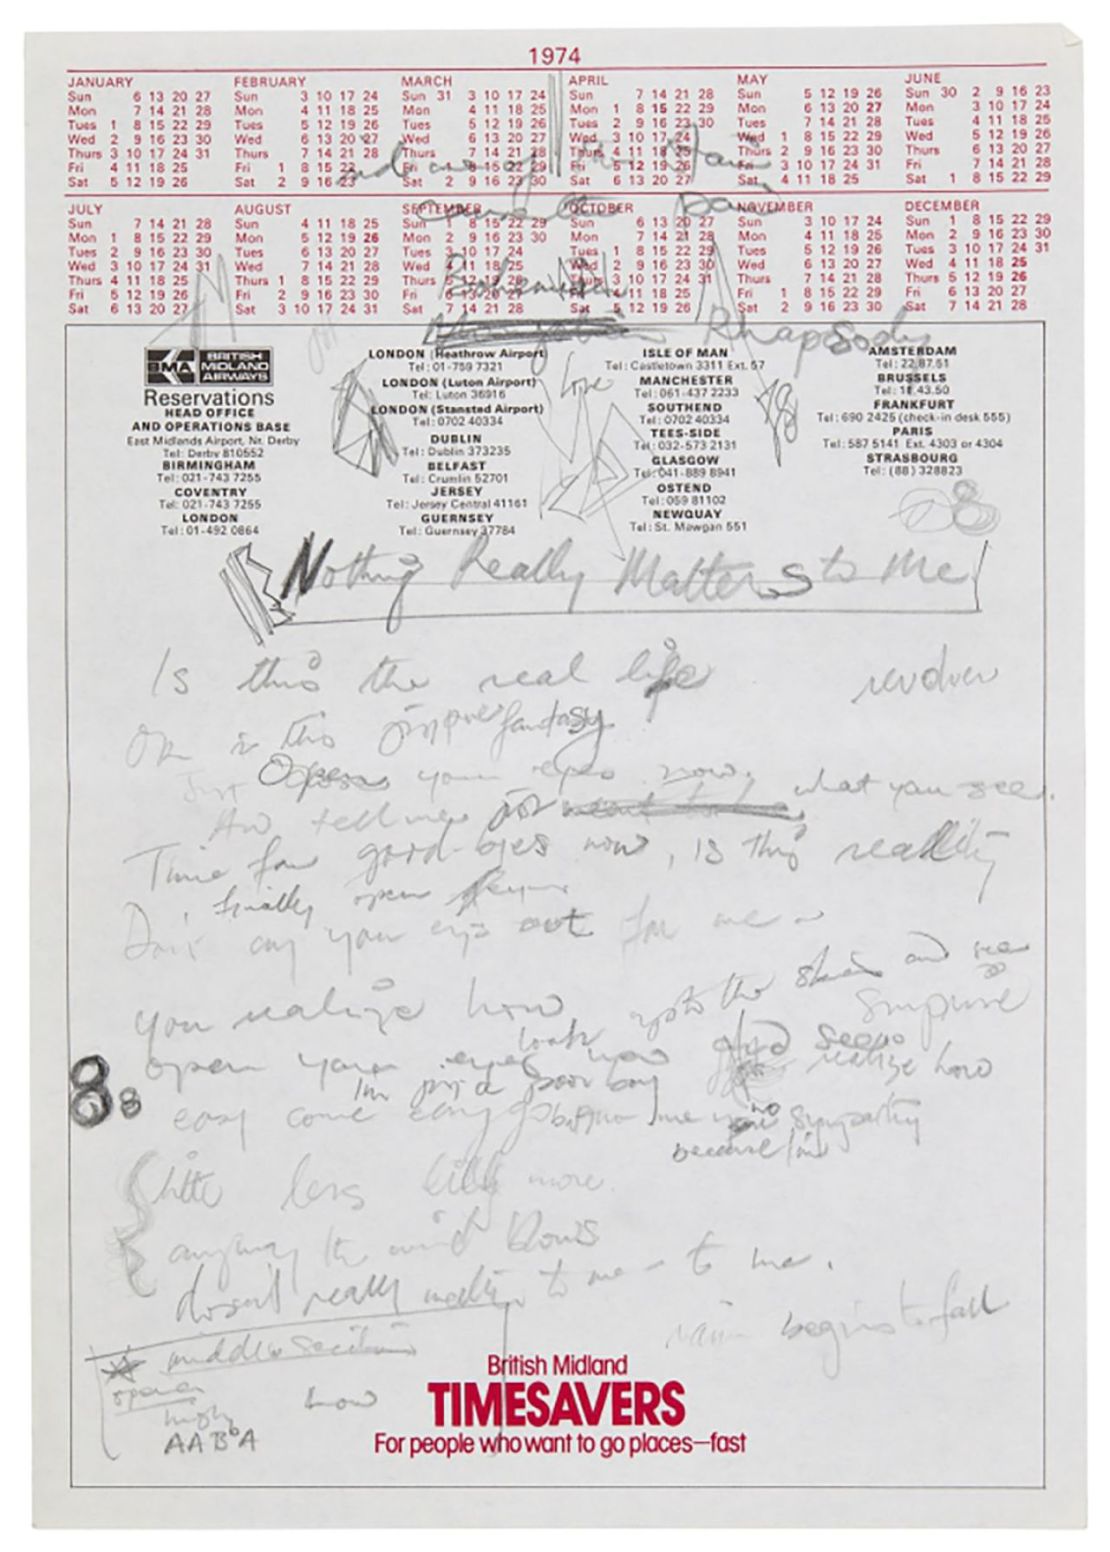 1974
JANUARY
Sun 6 13 20 27
Mon 7 14 21 28
Tues 1 8 15 22 29
Wed 2 9 16 23 30
Thurs 3 10 17 24 31
Fri 4 11 18 25
Sat 5 12 19 26
FEBRUARY
Sun 3 10 17 24
Mon 4 11 18 25
Tues 5 12 19 26
Wed 6 13 20 27
Thurs 7 14 21 28
Fri 1 8 15 22
Sat 2 9 16 23
MARCH
Sun 31 3 10 17 24
Mon 4 11 18 25
Tues 5 12 19 26
Wed 6 13 20 27
Thurs 7 14 21 28
Fri 1 8 15 22 29
Sat 2 9 16 23 30
APRIL
Sun 7 14 21 28
Mon 1 8 15 22 29
Tues 2 9 16 23 30
Wed 3 10 17 24
Thurs 4 11 18 25
Fri 5 12 19 26
Sat 6 13 20 27
MAY
Sun 5 12 19 26
Mon 6 13 20 27
Tues 7 14 21 28
Wed 1 8 15 22 29
Thurs 2 9 16 23 30
Fri 3 10 17 24 31
Sat 4 11 18 25
JUNE
Sun 30 2 9 16 23
Mon 3 10 17 24
Tues 4 11 18 25
Wed 5 12 19 26
Thurs 6 13 20 27
Fri 7 14 21 28
Sat 1 8 15 22 29
JULY
Sun 7 14 21 28
Mon 1 8 15 22 29
Tues 2 9 16 23 30
Wed 3 10 17 24 31
Thurs 4 11 18 25
Fri 5 12 19 26
Sat 6 13 20 27
AUGUST
Sun 4 11 18 25
Mon 5 12 19 26
Tues 6 13 20 27
Wed 7 14 21 28
Thurs 1 8 15 22 29
Fri 2 9 16 23 30
Sat 3 10 17 24 31
SEPTEMBER
Sun 1 8 15 22 29
Mon 2 9 16 23 30
Tues 3 10 17 24
Wed 4 11 18 25
Fri 6 13 20 27
Sat 7 14 21 28
OCTOBER
Sun 6 13 20 27
Mon 7 14 21 28
Tues 1 8 15 22 29
Wed 2 9 16 23 30
Thurs 3 10 17 24 31
Fri 4 11 18 25
Sat 5 12 19 26
NOVEMBER
Sun 3 10 17 24
Mon 4 11 18 25
Tues 5 12 19 26
Wed 6 13 20 27
Thurs 7 14 21 28
Fri 1 8 15 22 29
Sat 2 9 16 23 30
DECEMBER
Sun 1 8 15 22 29
Mon 2 9 16 23 30
Tues 3 10 17 24 31
Wed 4 11 18 25
Thurs 5 12 19 26
Fri 6 13 20 27
Sat 7 14 21 28
Bohemian
Rhapsody
BMA BRITISH MIDLAND AIRWAYS
Reservations
HEAD OFFICE
AND OPERATIONS BASE
East Midlands Airport, Nr. Derby
Tel: Derby 810552
BIRMINGHAM
Tel: 021-743 7255
COVENTRY
Tel: 021-743 7255
LONDON
Tel: 01-492 0864
LONDON (Heathrow Airport)
Tel: 01-759 7321
LONDON (Luton Airport)
Tel: Luton 36916
LONDON (Stansted Airport)
Tel: 0702 40334
DUBLIN
Tel: Dublin 373235
BELFAST
Tel: Crumlin 52701
JERSEY
Tel: Jersey Central 41161
GUERNSEY
Tel: Guernsey 37784
Love
ISLE OF MAN
Tel: Castletown 3311 Ext. 57
MANCHESTER
Tel: 061-437 2233
SOUTHEND
Tel: 0702 40334
TEES-SIDE
Tel: 032-573 2131
GLASGOW
Tel: 041-889 8941
OSTEND
Tel: 059 81102
NEWQUAY
Tel: St. Mawgan 551
AMSTERDAM
Tel: 22.87.51
BRUSSELS
Tel: 18.43.50
FRANKFURT
Tel: 690 2425 (check-in desk 555)
PARIS
Tel: 587 5141 Ext. 4303 or 4304
STRASBOURG
Tel: (88) 328823
8
Nothing Really Matters to Me
Is this the real life
Or is this fantasy
Just Open your eyes now.
And tell me what you see.
Time for good-byes now, is this reality
finally open
Don't cry your eyes out for me
you realize how up to the and see
surprise
look
open your eyes now and seeee
realize how
8 8
I'm just a poor boy
easy come easy go me no sympathy
because I'm
little less little more.
anyway the wind blows
doesn't really matter to me - to me.
rain begins to fall
middle section
open
high low
AABA
British Midland
TIMESAVERS
For people who want to go places—fast